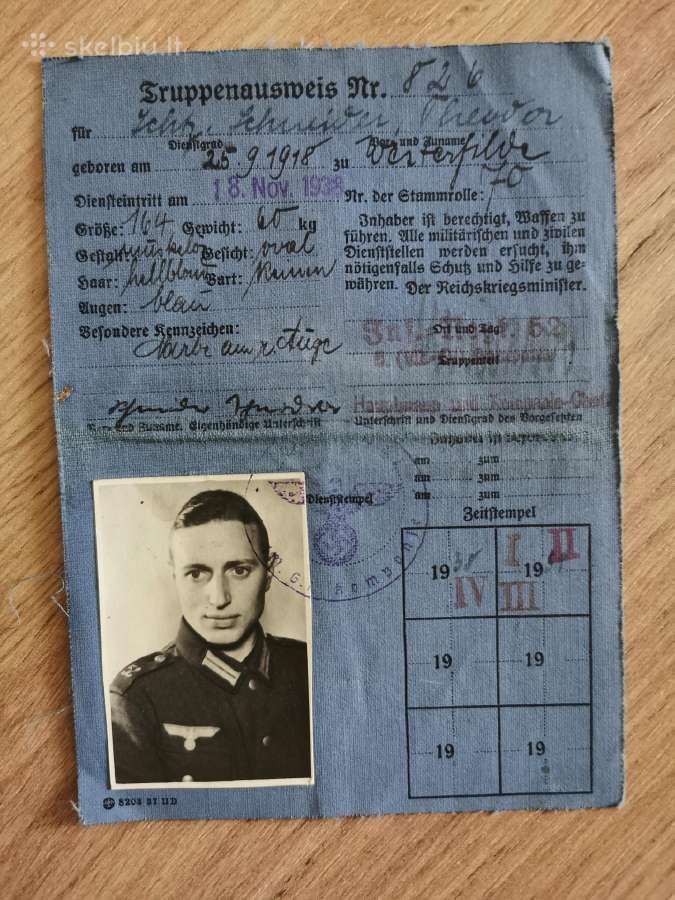 skelbiu.lt
Truppenausweis Nr. 826
für Schtz. Schneider, Theodor
Dienstgrad Vor- und Zuname
geboren am 25.9.1918 zu
Diensteintritt am 18. Nov. 1938 Nr. der Stammrolle: 70
Größe: 164 Gewicht: 60 kg
Gestalt: Gesicht: oval
Haar: hellblond Bart: keinen
Augen: blau
Besondere Kennzeichen:
Narbe am r. Auge
Inhaber ist berechtigt, Waffen zu
führen. Alle militärischen und zivilen
Dienststellen werden ersucht, ihm
nötigenfalls Schutz und Hilfe zu ge-
währen. Der Reichskriegsminister.
Ort und Tag
Inf.-Regt.
Truppenteil
Hauptmann und Kompanie-Chef
Vor- und Zuname. Eigenhändige Unterschrift
Unterschrift und Dienstgrad des Vorgesetzten
am zum
am zum
am zum
Dienststempel
Zeitstempel
19 38 IV
I II 19 III
19 19
19 19
5203 37 II D